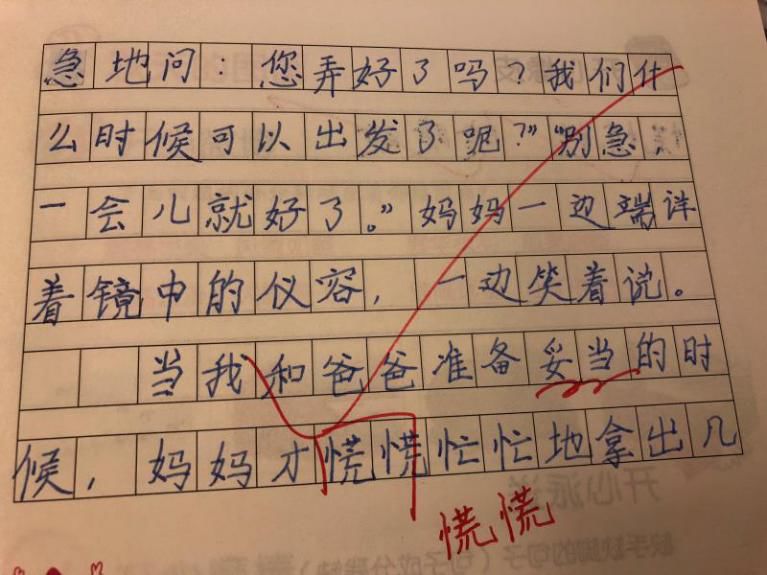 急地问：您弄好了吗？我们什
么时候可以出发了呢？”“别急，
一会儿就好了。”妈妈一边端详
着镜中的仪容，一边笑着说。
当我和爸爸准备妥当的时
候，妈妈才慌慌忙忙地拿出几
慌慌